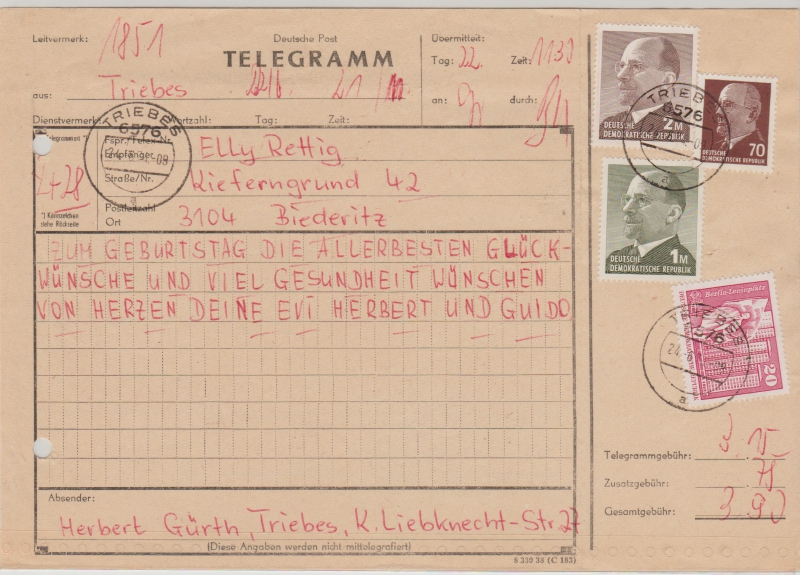 Leitvermerk: 1851
Deutsche Post
TELEGRAMM
Übermittelt:
Tag: 22. Zeit: 1130
aus: Triebes 21
an: durch:
Dienstvermerk: Wortzahl: Tag: Zeit:
Telegrammart *)
Fspr./Telex-Nr.
Empfänger Elly Rettig
Straße/Nr. Kieferngrund 42
Postleitzahl
Ort 3104 Biederitz
*) Kennzeichen
siehe Rückseite
ZUM GEBURTSTAG DIE ALLERBESTEN GLÜCK-
WÜNSCHE UND VIEL GESUNDHEIT WÜNSCHEN
VON HERZEN DEINE EVI HERBERT UND GUIDO
Absender:
Herbert Gürth, Triebes, K. Liebknecht-Str. 27
(Diese Angaben werden nicht mittelegrafiert)
TRIEBES
6576
a
2M
DEUTSCHE
DEMOKRATISCHE REPUBLIK
70
DEUTSCHE
DEMOKRATISCHE REPUBLIK
TRIEBES
6576
a
1M
DEUTSCHE
DEMOKRATISCHE REPUBLIK
Berlin-Leninplatz
20
TRIEBES
6576
a
Telegrammgebühr: 3.15
Zusatzgebühr: 75
Gesamtgebühr: 3 90